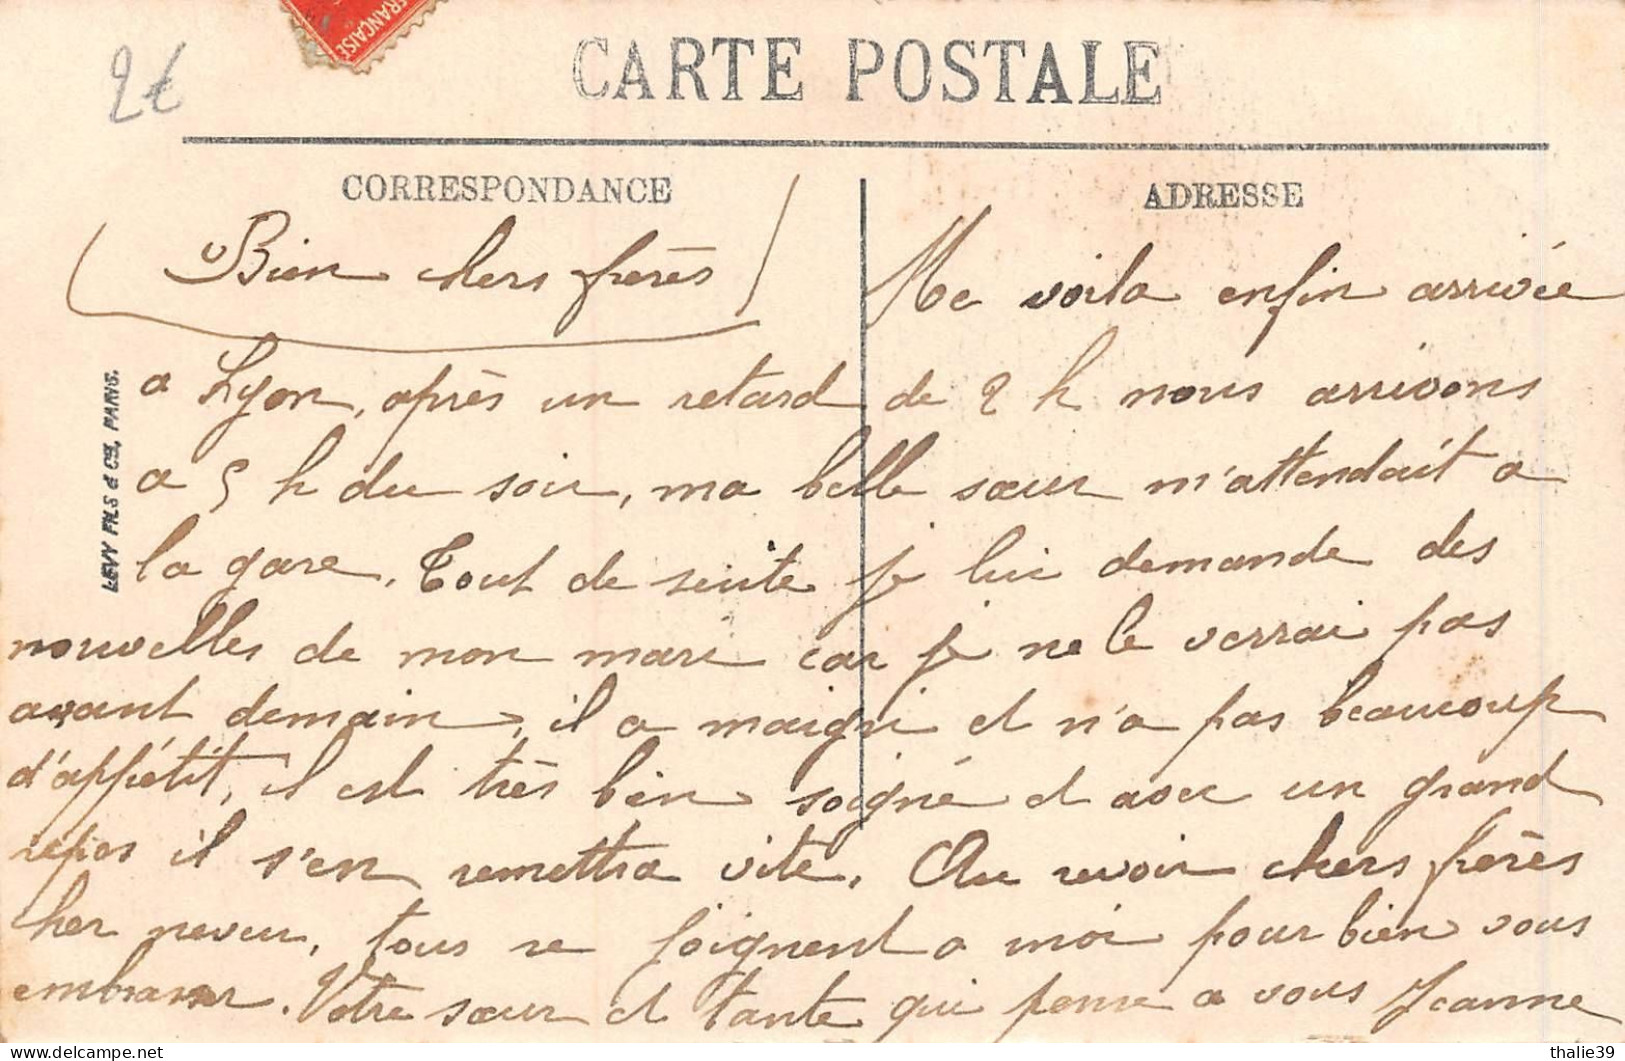 FRANÇAISE
2€
CARTE POSTALE
CORRESPONDANCE
ADRESSE
Bien chers frerès
Me voila enfin arrivée
a Lyon, après un retard de 2 h nous arrivons
a 5 h du soir, ma belle sœur m'attendait a
la gare. Tout de suite je lui demande des
nouvelles de mon mari car je ne le verrai pas
avant demain, il a maigri et n'a pas beaucoup
d'appétit, il est très bien soigné et avec un grand
repos il s'en remettra vite. Au revoir chers frerès
cher neveu, tous se joignent a moi pour bien vous
embrasser. Votre sœur et tante qui pense a vous Jeanne
LEVY FILS & CIE, PARIS.
thalie39